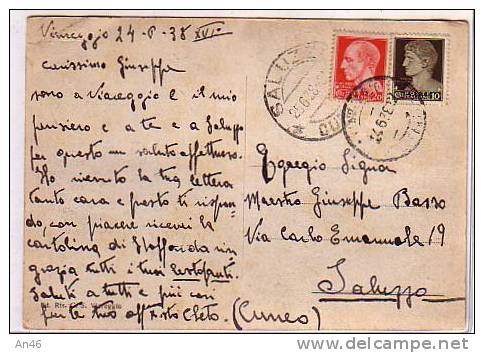 Viareggio 24-6-38 XVI°
Carissimo Giuseppe
sono a Viareggio e il mio
pensiero e a te e a Saluzzo
per questo un saluto affettuoso.
Ho ricevuto la tua lettera
tanto cara e presto ti rispon
do, con piacere ricevei la
cartolina di Staffarda rin
grazia tutti i tuoi
Saluti a tutti e più cari
per te tuo aff
Egregio Signor
Maestro Giuseppe Basso
Via Carlo Emanuele 19
Saluzzo
(Cuneo)
SALUZZO
20
10
An46
www.delcampe.net